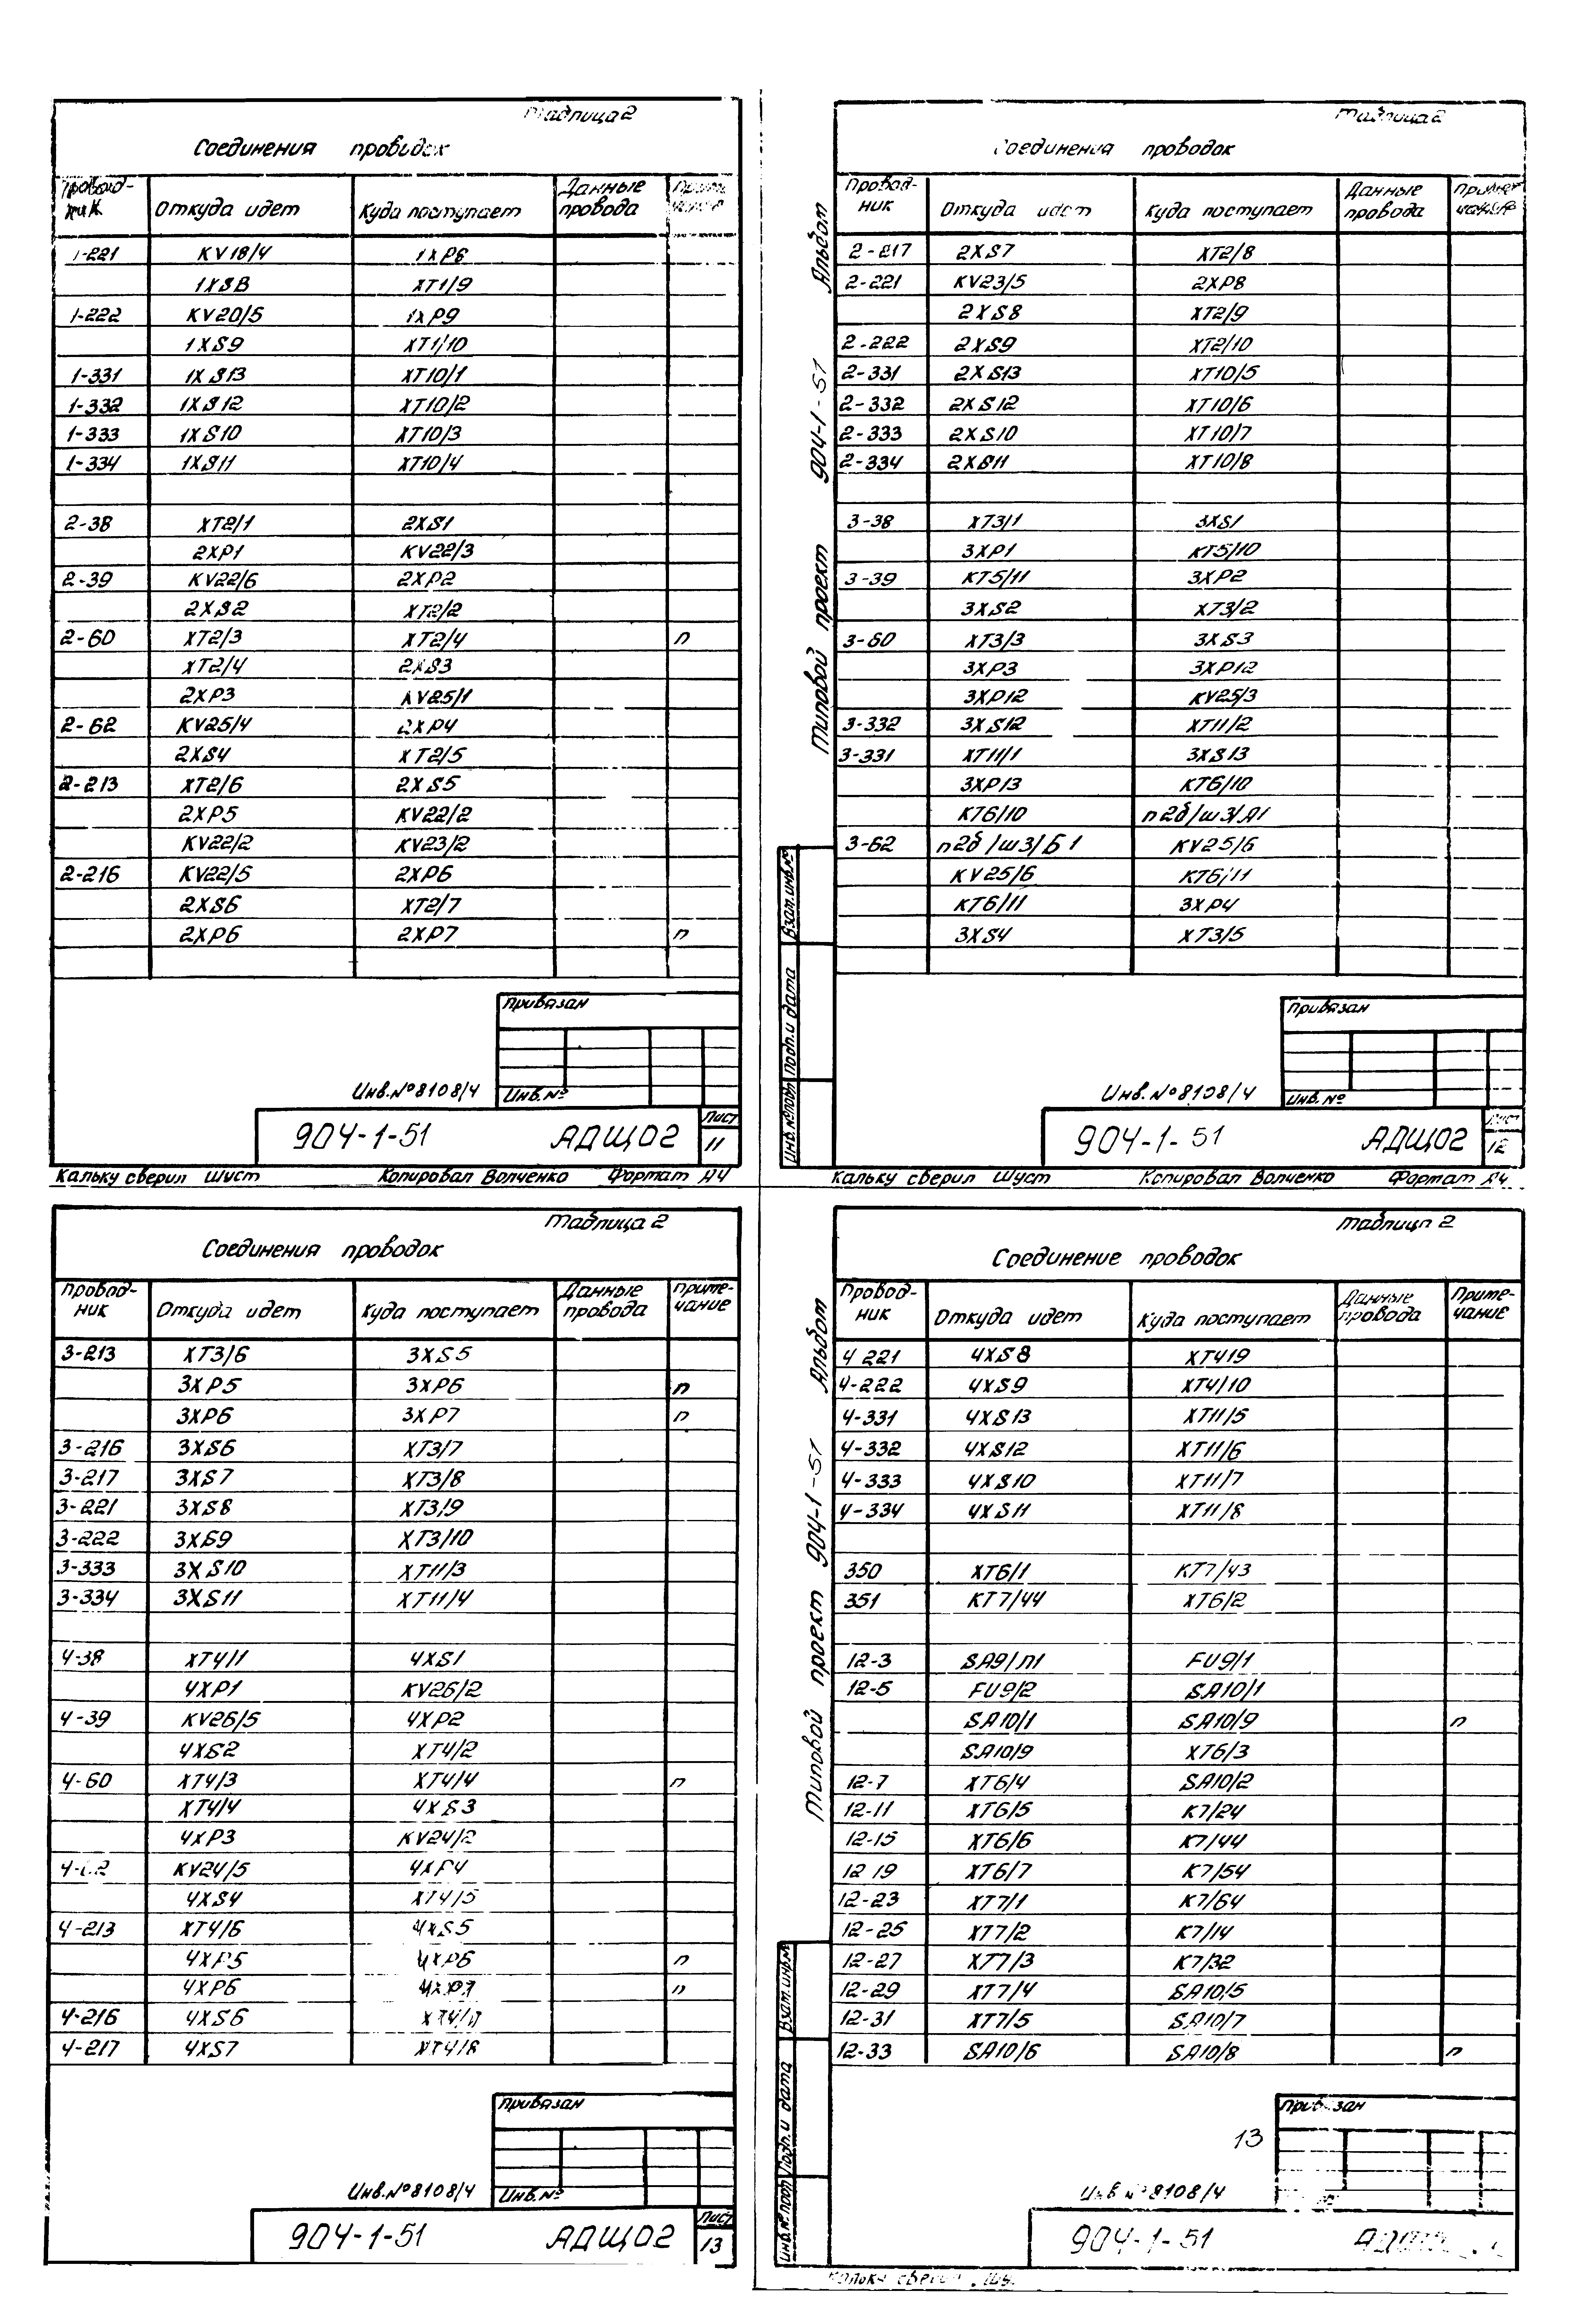 Таблица 2
Соединения проводок
Провод-
ник
Откуда идет
Куда поступает
Данные
провода
Приме-
чание
1-221 KV18/4 1XP6
1XS8 XT1/9
1-222 KV20/5 1XP9
1XS9 XT1/10
1-331 1XS13 XT10/1
1-332 1XS12 XT10/2
1-333 1XS10 XT10/3
1-334 1XS11 XT10/4
2-38 XT2/1 2XS1
2XP1 KV22/3
2-39 KV22/6 2XP2
2XS2 XT2/2
2-60 XT2/3 XT2/4 п
XT2/4 2XS3
2XP3 KV25/1
2-62 KV25/4 2XP4
2XS4 XT2/5
2-213 XT2/6 2XS5
2XP5 KV22/2
KV22/2 KV23/2
2-216 KV22/5 2XP6
2XS6 XT2/7
2XP6 2XP7 п
Привязан
Инв.№8108/4
Инв.№
904-1-51 АДЩ02
Лист
11
Кальку сверил Шуст Копировал Волченко Формат А4
Таблица 2
Соединения проводок
Провод-
ник
Откуда идет
Куда поступает
Данные
провода
Примечание
2-217 2XS7 XT2/8
2-221 KV23/5 2XP8
2XS8 XT2/9
2-222 2XS9 XT2/10
2-331 2XS13 XT10/5
2-332 2XS12 XT10/6
2-333 2XS10 XT10/7
2-334 2XS11 XT10/8
3-38 XT3/1 3XS1
3XP1 KT5/10
3-39 KT5/11 3XP2
3XS2 XT3/2
3-60 XT3/3 3XS3
3XP3 3XP12
3XP12 KV25/3
3-332 3XS12 XT11/2
3-331 XT11/1 3XS13
3XP13 KT6/10
KT6/10 п2б/ш3/А1
3-62 п2б/ш3/Б1 KV25/6
KV25/6 KT6/11
KT6/11 3XP4
3XS4 XT3/5
Типовой проект 904-1-51 Альбом
Взам.инв.№
Подп.и дата
Инв.№подл
Привязан
Инв.№8108/4
Инв.№
904-1-51 АДЩ02
Лист
12
Кальку сверил Шуст Копировал Волченко Формат А4
Таблица 2
Соединения проводок
Провод-
ник
Откуда идет
Куда поступает
Данные
провода
Приме-
чание
3-213 XT3/6 3XS5
3XP5 3XP6 п
3XP6 3XP7 п
3-216 3XS6 XT3/7
3-217 3XS7 XT3/8
3-221 3XS8 XT3/9
3-222 3XS9 XT3/10
3-333 3XS10 XT11/3
3-334 3XS11 XT11/4
4-38 XT4/1 4XS1
4XP1 KV26/2
4-39 KV26/5 4XP2
4XS2 XT4/2
4-60 XT4/3 XT4/4 п
XT4/4 4XS3
4XP3 KV24/2
4-62 KV24/5 4XP4
4XS4 XT4/5
4-213 XT4/6 4XS5
4XP5 4XP6 п
4XP6 4XP7 п
4-216 4XS6 XT4/7
4-217 4XS7 XT4/8
Привязан
Инв.№8108/4
Инв.№
904-1-51 АДЩ02
Лист
13
Таблица 2
Соединение проводок
Провод-
ник
Откуда идет
Куда поступает
Данные
провода
Приме-
чание
4 221 4XS8 XT4/9
4-222 4XS9 XT4/10
4-331 4XS13 XT11/5
4-332 4XS12 XT11/6
4-333 4XS10 XT11/7
4-334 4XS11 XT11/8
350 XT6/1 KT7/43
351 KT7/44 XT6/2
12-3 SA9/Л1 FU9/1
12-5 FU9/2 SA10/1
SA10/1 SA10/9 п
SA10/9 XT6/3
12-7 XT6/4 SA10/2
12-11 XT6/5 K7/24
12-15 XT6/6 K7/44
12 19 XT6/7 K7/54
12-23 XT7/1 K7/64
12-25 XT7/2 K7/14
12-27 XT7/3 K7/32
12-29 XT7/4 SA10/5
12-31 XT7/5 SA10/7
12-33 SA10/6 SA10/8 п
Типовой проект 904-1-51 Альбом
Взам.инв.№
Подп.и дата
Инв.№подл
Привязан
13
Инв №8108/4
904-1-51
Кальку сверил